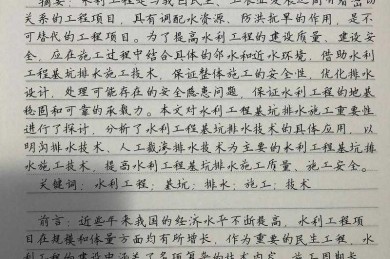 摘要：水利工程是与我国民生、工农业发展之间有着密切
关系的工程项目，具有调配水资源、防洪抗旱的作用，是不
可替代的工程项目。为了提高水利工程的建设质量、建设安
全，应在施工过程中结合具体的邻水和近水环境，借助水利
工程基坑排水施工技术，保证整体施工的安全性，优化排水
设计，处理可能存在的安全隐患问题，保证水利工程的地基
稳固和可靠的承载力。本文对水利工程基坑排水施工重要性
进行了探讨，分析了水利工程基坑排水技术的具体应用，以
明沟排水技术、人工数渗排水技术为主要的水利工程基坑排
水施工技术，提高水利工程基坑排水施工质量、施工安全。
关键词：水利工程；基坑；排水；施工；技术
前言：近些年来我国的经济水平不断提高，水利工程项
目在规模和体量方面均有所增长，作为重要的民生工程，水
利工程的建设中涵盖了多项复杂的技术内容，施工周期长